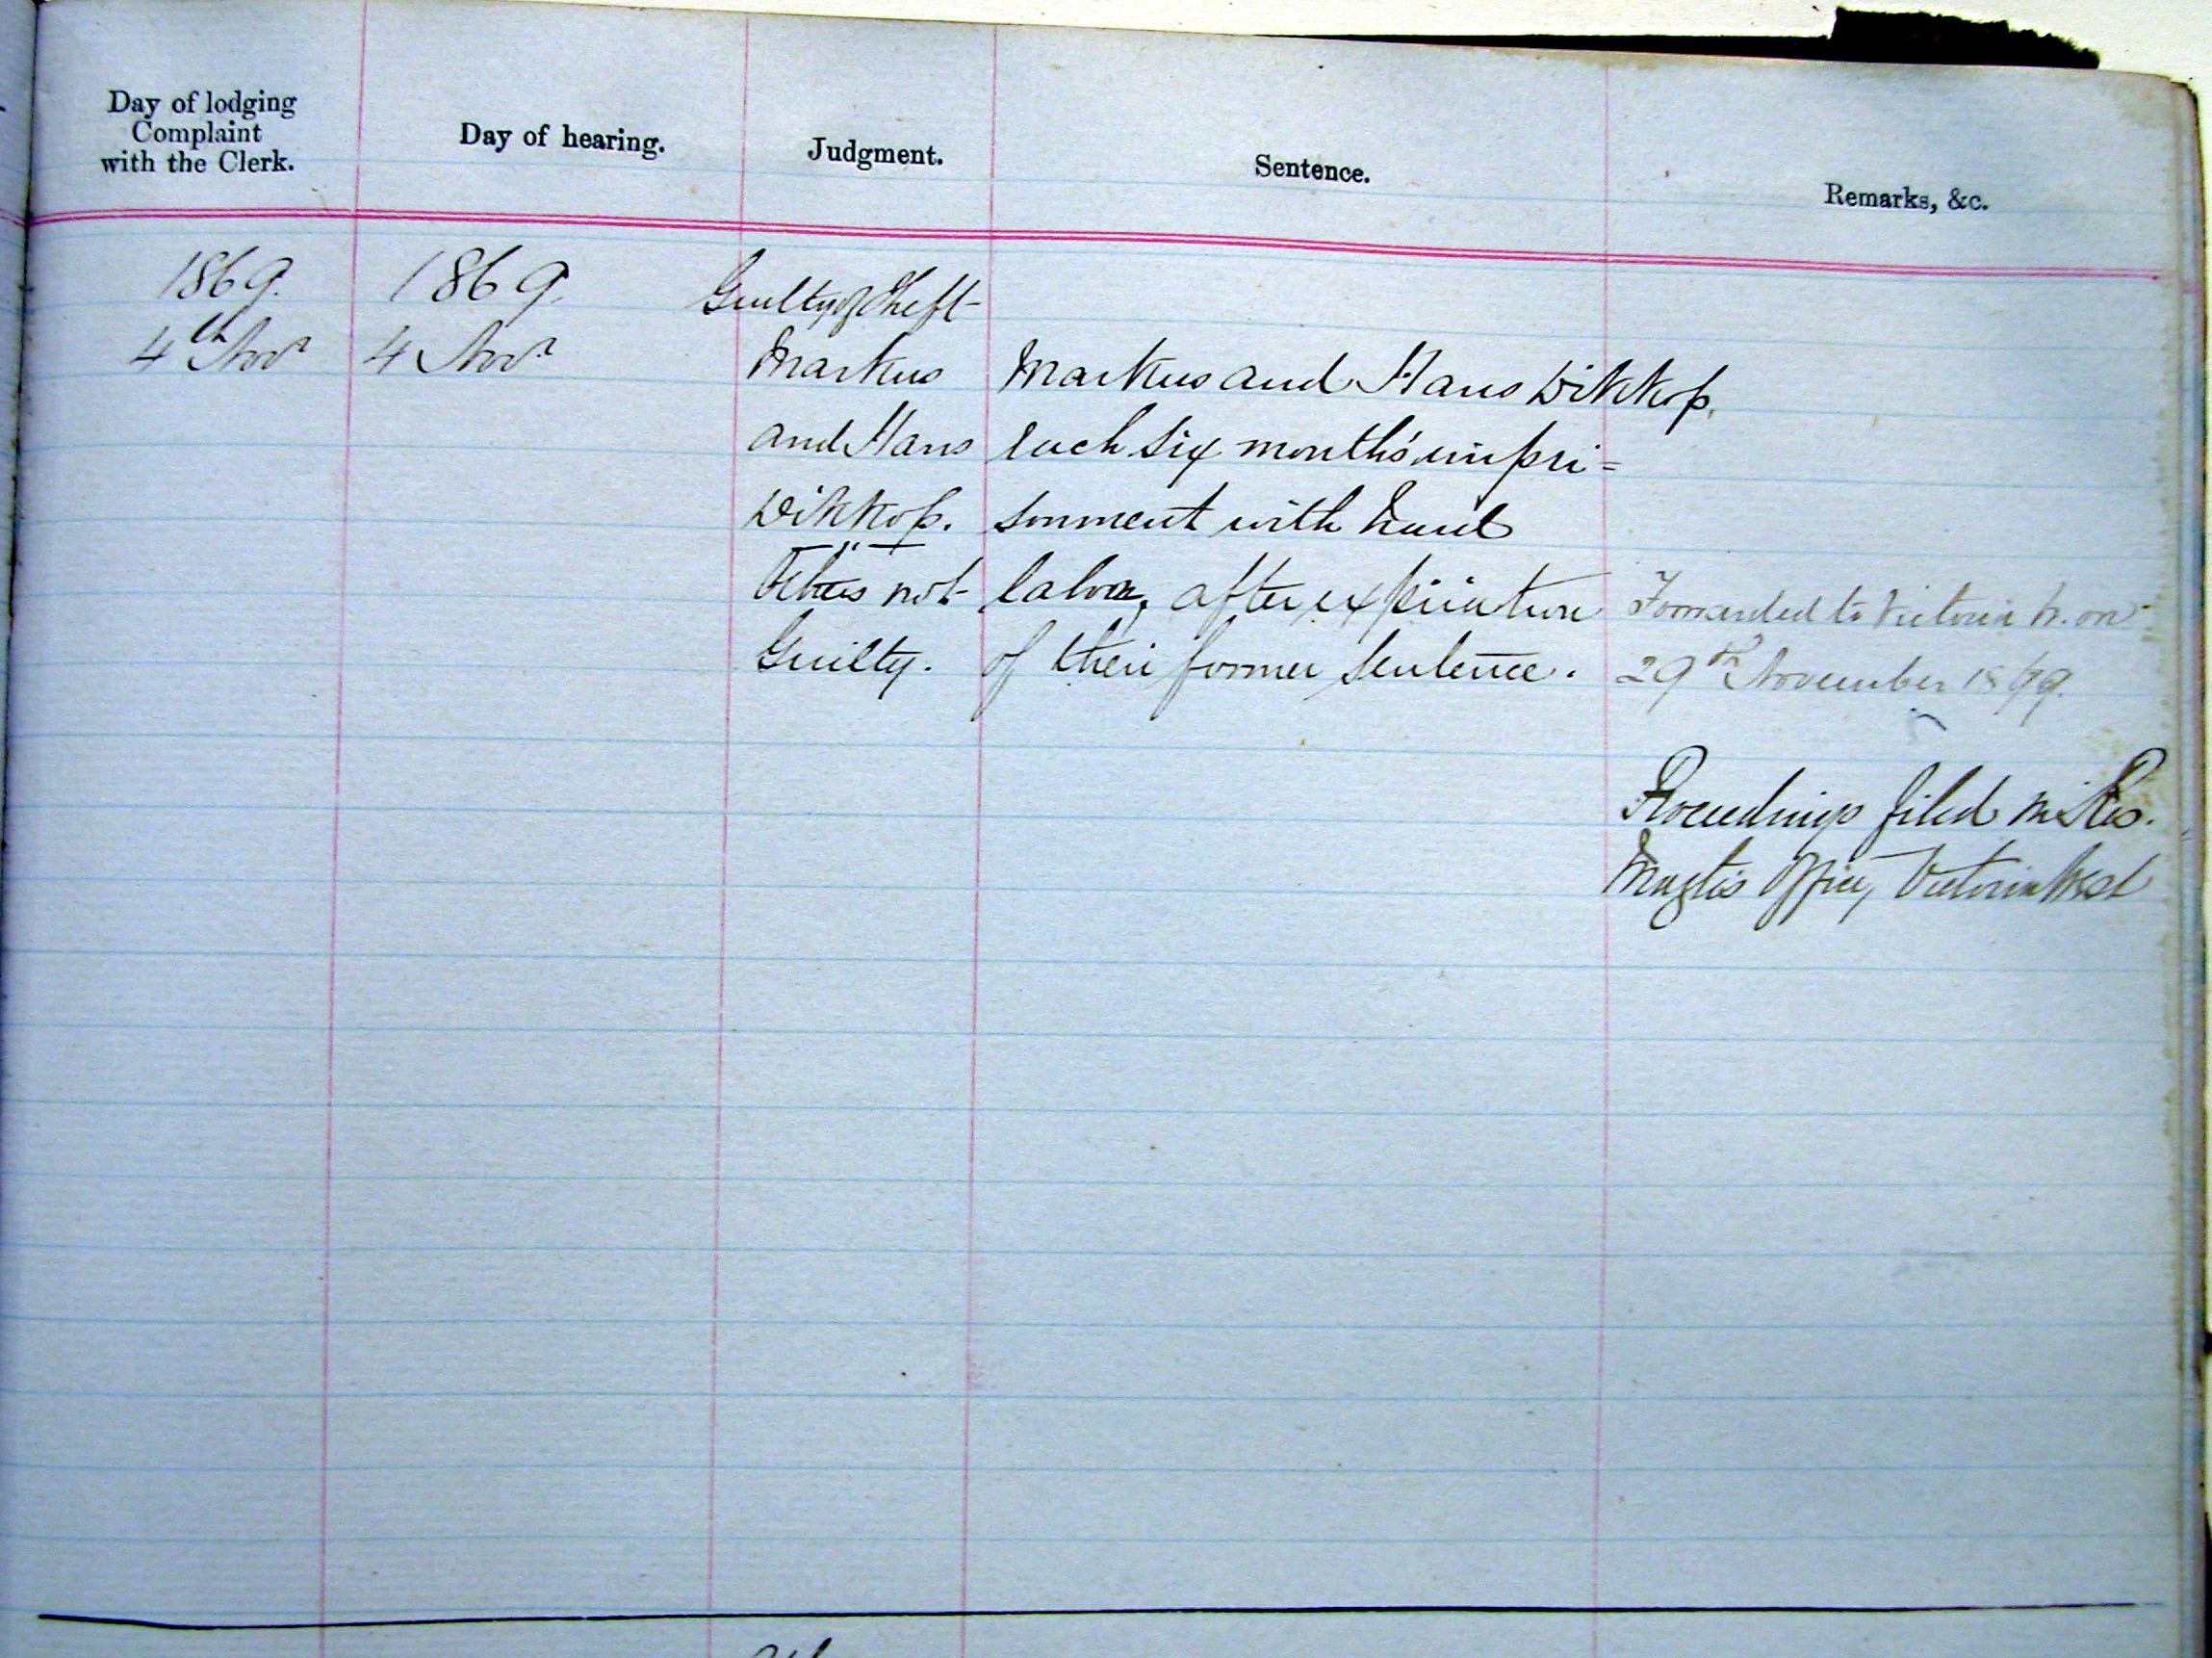 Day of lodging
Complaint
with the Clerk.
Day of hearing.
Judgment.
Sentence.
Remarks, &c.
1869.
4th Novr
1869.
4 Novr
Guilty of Theft
Markus
and Hans
Dikkop.
not
Guilty.
Markus and Hans Dikkop.
each six month's impri=
sonment with hard
labor, after expiration
of their former sentence.
Forwarded to Victoria W. on
29th November 1869.
Proceedings filed in Res.
Magtes Office, Victoria West